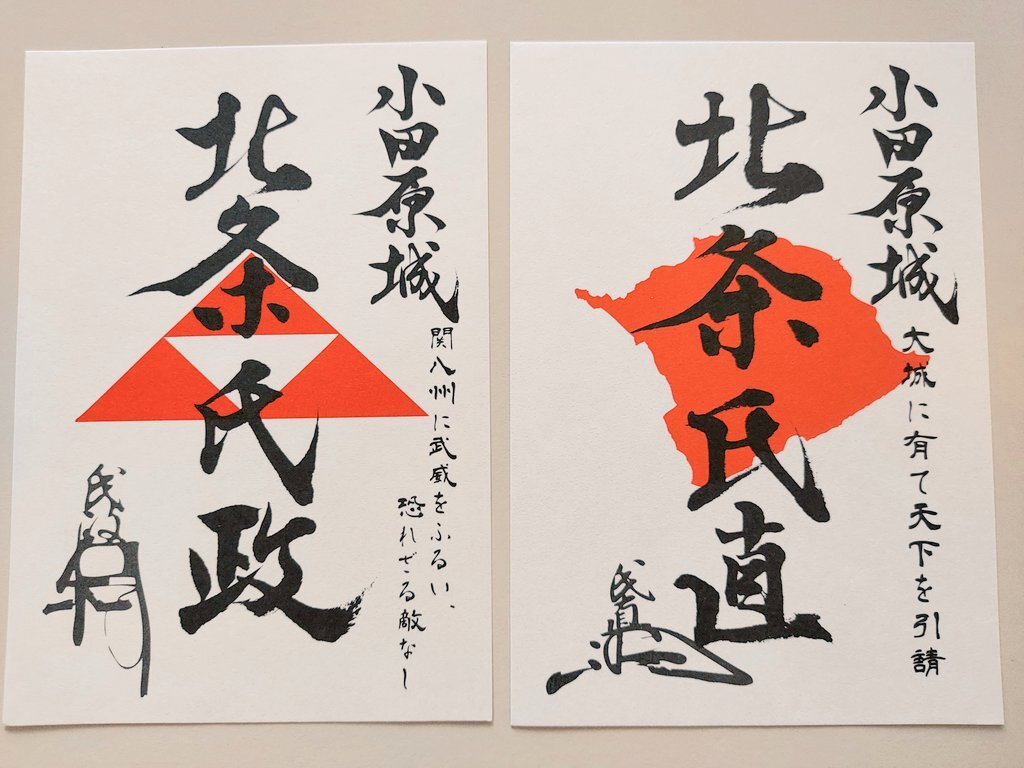 小田原城
関八州に武威をふるい、
恐れざる敵なし
北条氏政
氏政
小田原城
大城に有て天下を引請
北条氏直
氏直